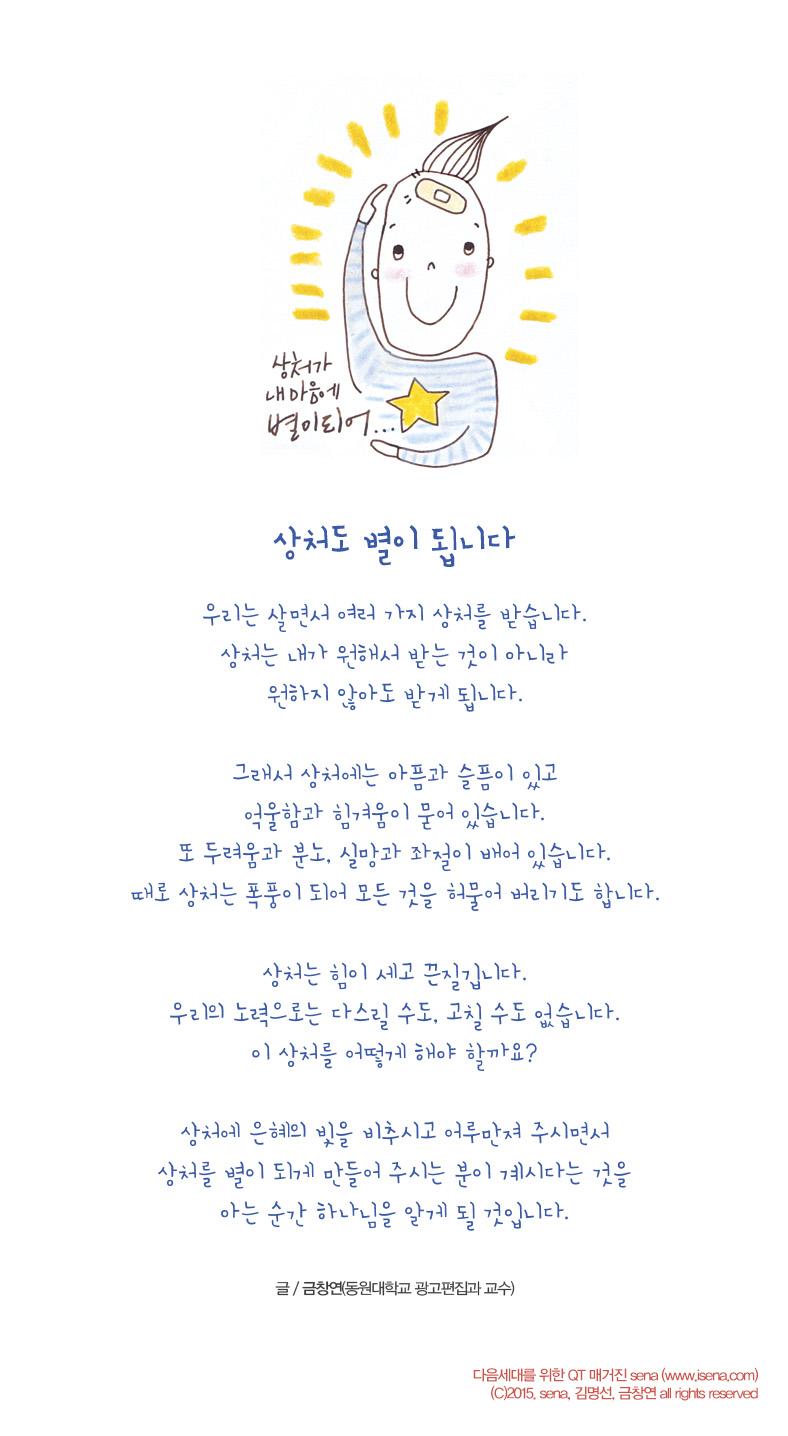 상처가
내 마음에
별이 되어...
상처도 별이 됩니다
우리는 살면서 여러 가지 상처를 받습니다.
상처는 내가 원해서 받는 것이 아니라
원하지 않아도 받게 됩니다.
그래서 상처에는 아픔과 슬픔이 있고
억울함과 힘겨움이 묻어 있습니다.
또 두려움과 분노, 실망과 좌절이 배어 있습니다.
때로 상처는 폭풍이 되어 모든 것을 허물어 버리기도 합니다.
상처는 힘이 세고 끈질깁니다.
우리의 노력으로는 다스릴 수도, 고칠 수도 없습니다.
이 상처를 어떻게 해야 할까요?
상처에 은혜의 빛을 비추시고 어루만져 주시면서
상처를 별이 되게 만들어 주시는 분이 계시다는 것을
아는 순간 하나님을 알게 될 것입니다.
글 / 금창연(동원대학교 광고편집과 교수)
다음세대를 위한 QT 매거진 sena (www.isena.com)
(C)2015, sena, 김명선, 금창연 all rights reserved